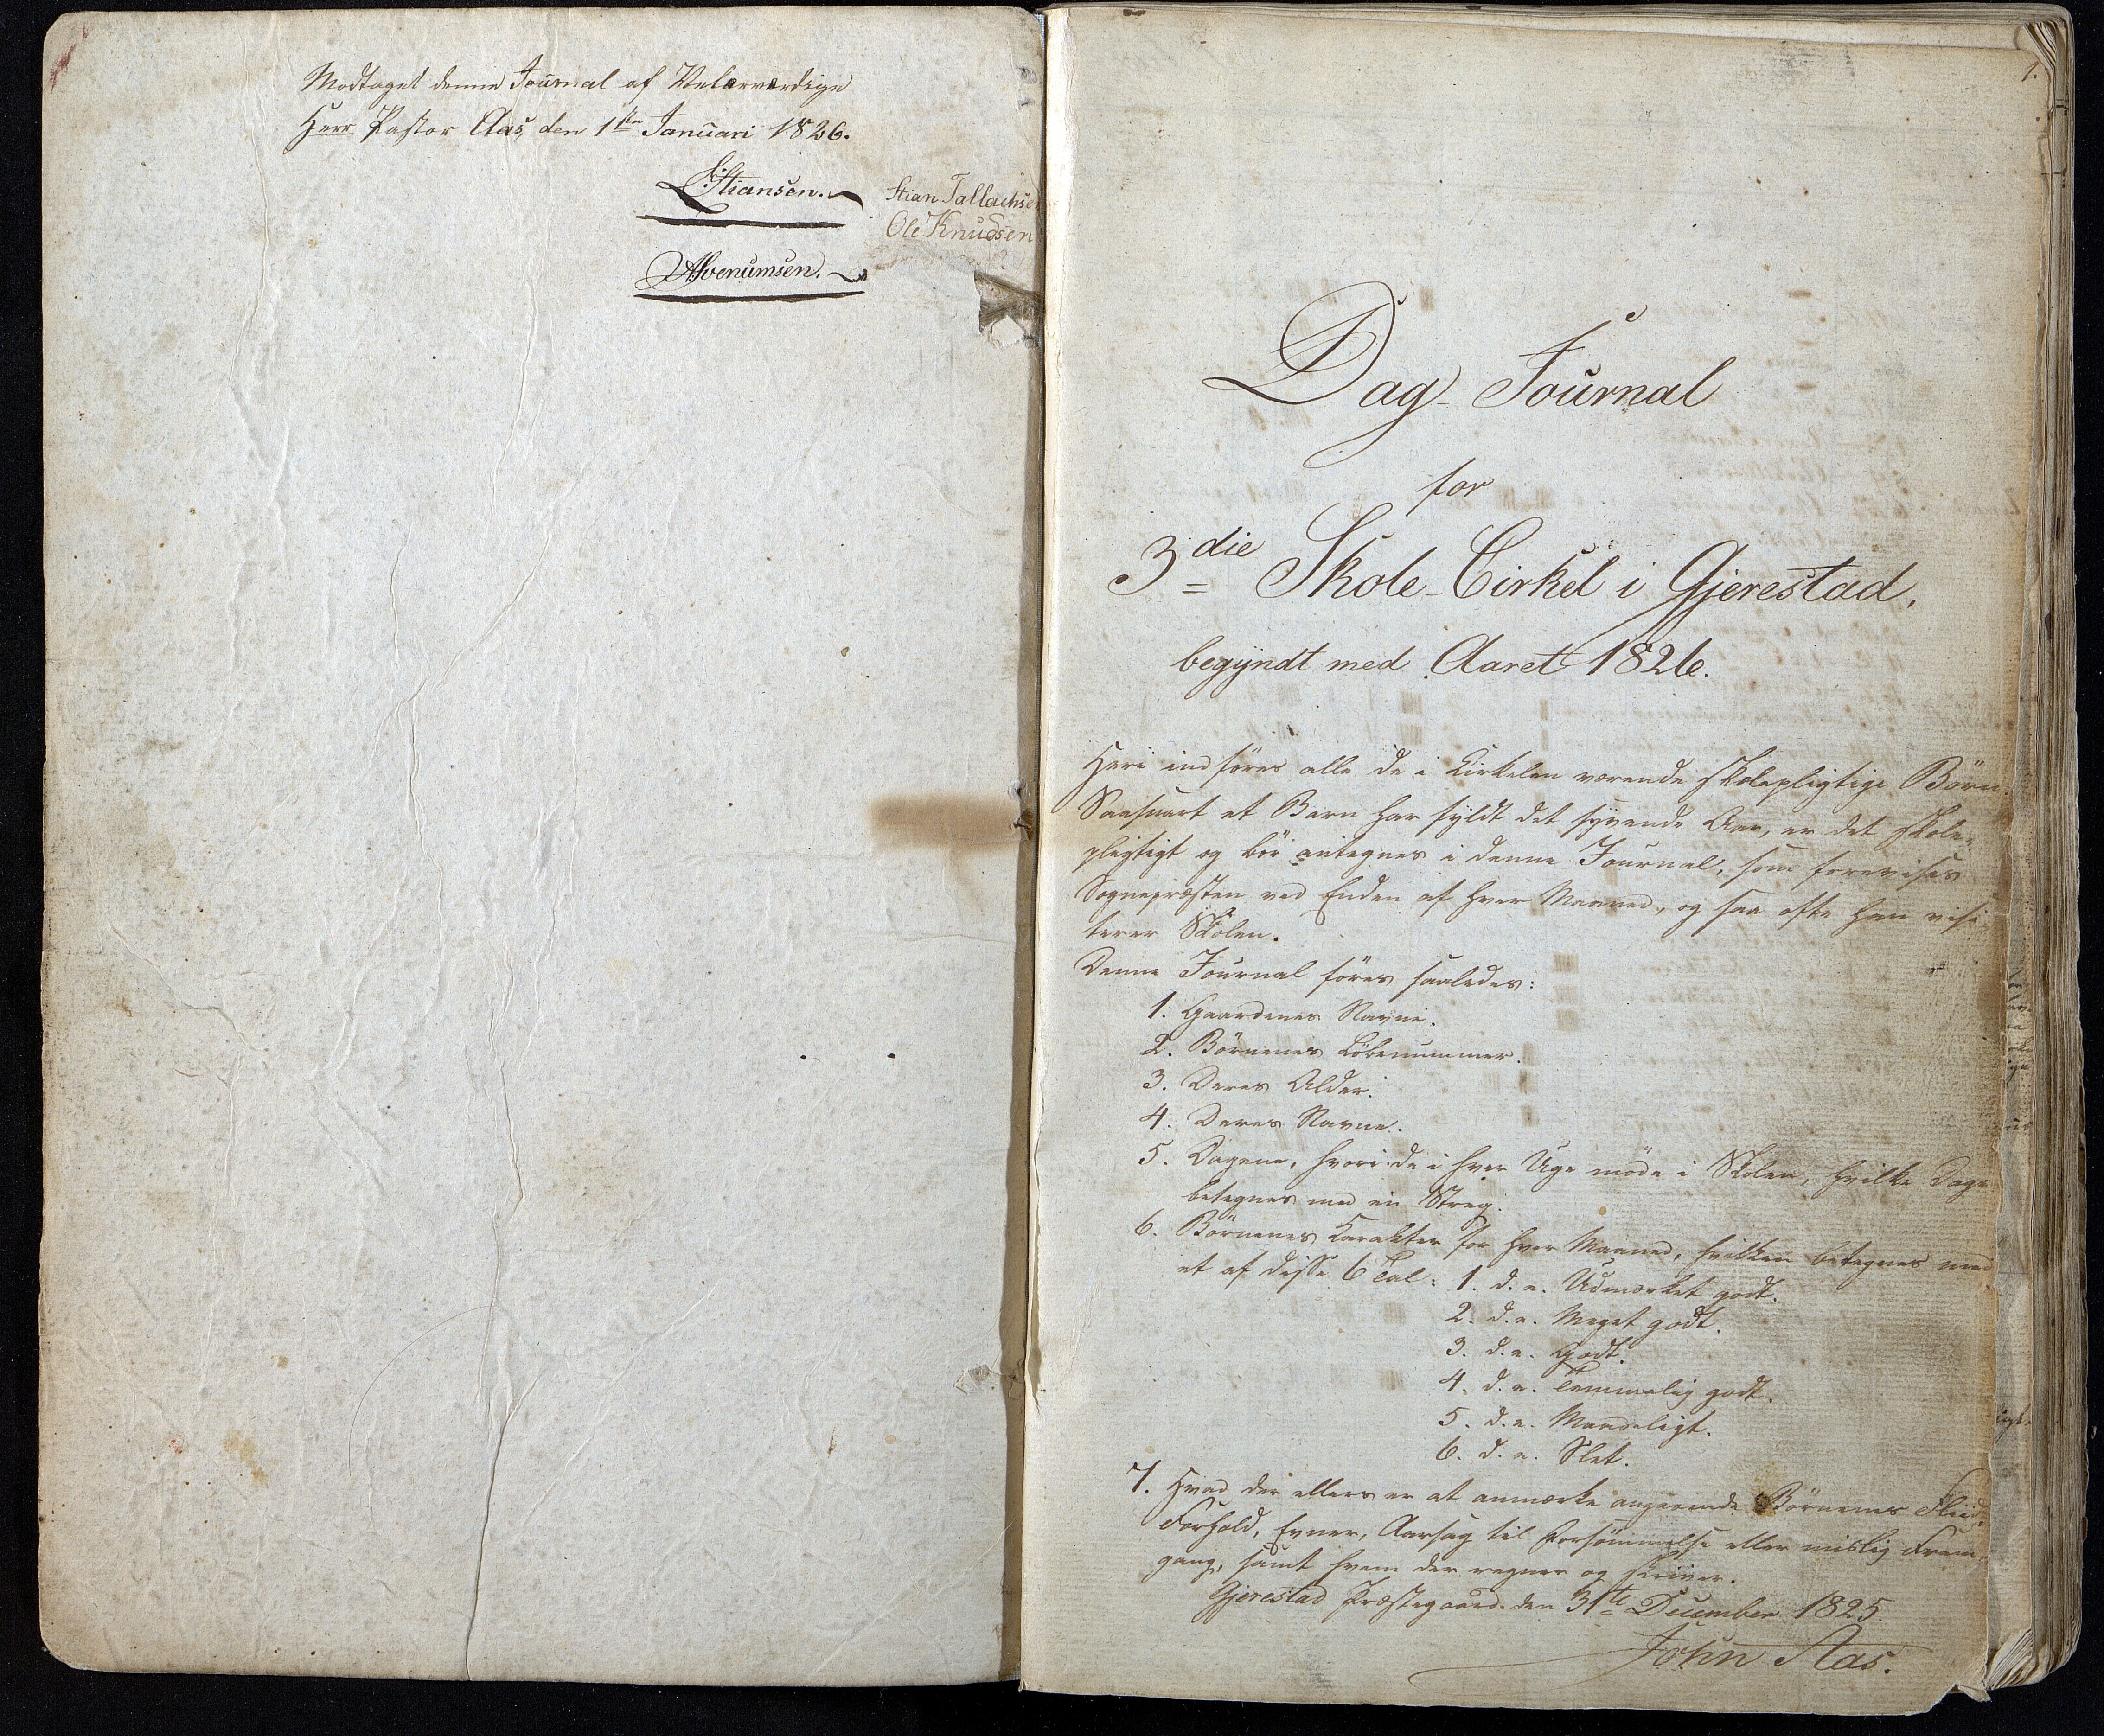 Modtaget denne Journal af Velærværdige
Herr Pastor Aas, den 1ste Januari 1826.
Stiansen.
Stian Tallachsen
Ole Knudsen
Svenumsen.
1.
Dag-Journal
for
3die Skole-Cirkel i Gjerestad,
begyndt med Aaret 1826.
Heri indføres alle de i Cirkelen værende skolepligtige Börn.
Saasnart et Barn har fyldt det syvende Aar, er det skole-
pligtigt og bör antegnes i denne Journal, som forevises
Sognepræsten ved Enden af hver Maaned, og saa ofte han visi-
terer Skolen.
Denne Journal föres saaledes:
1. Gaardenes Navne.
2. Börnenes Löbenummer.
3. Deres Alder.
4. Deres Navne.
5. Dagene, hvori de i hver Uge möde i Skolen, hvilke Dage
betegnes med en Streg.
6. Börnenes Karakter for hver Maaned, hvilken betegnes med
et af disse 6 Tal: 1. d. e. Udmærket godt.
2. d. e. Meget godt.
3. d. e. Godt.
4. d. e. Temmelig godt.
5. d. e. Maadeligt.
6. d. e. Slet.
7. Hvad der ellers er at anmærke angaaende Börnenes Fliid,
Forhold, Evner, Aarsag til Forsömmelse eller mislig Frem-
gang, samt hvem der regner og skriver.
Gjerestad Præstegaard den 31te December 1825.
John Aas.